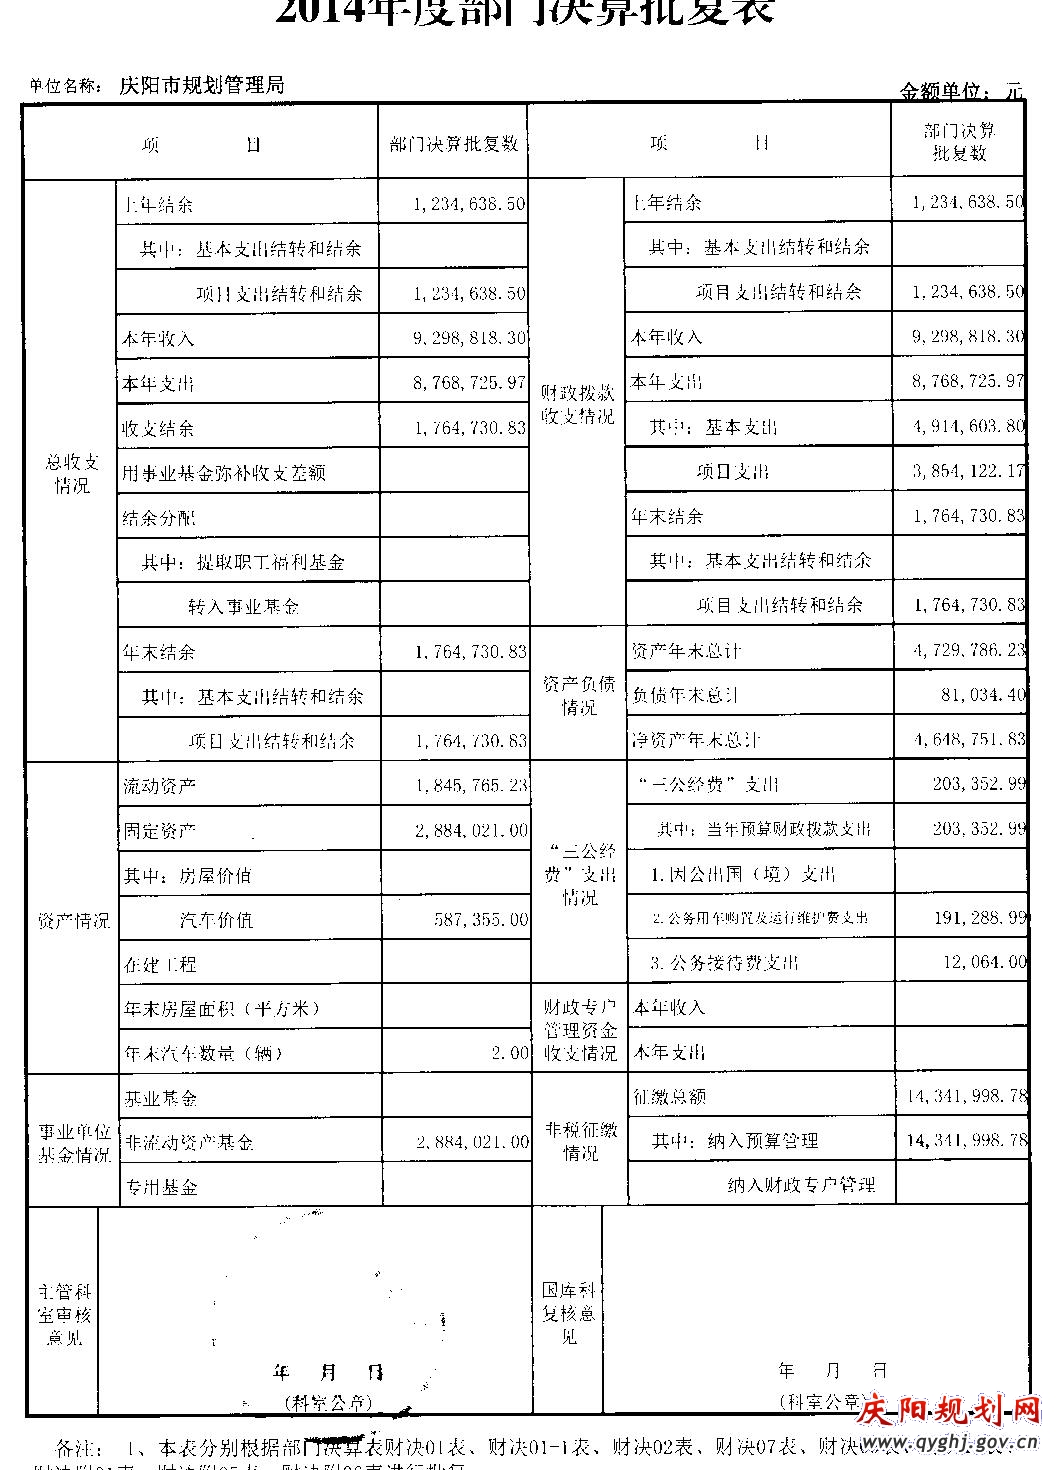 2014年度部门决算批复表
单位名称： 庆阳市规划管理局 金额单位：元
项 目 部门决算批复数 项 目 部门决算
批复数
总收支
情况
上年结余 1,234,638.50
其中：基本支出结转和结余
项目支出结转和结余 1,234,638.50
本年收入 9,298,818.30
本年支出 8,768,725.97
收支结余 1,764,730.83
用事业基金弥补收支差额
结余分配
其中：提取职工福利基金
转入事业基金
年末结余 1,764,730.83
其中：基本支出结转和结余
项目支出结转和结余 1,764,730.83
财政拨款
收支情况
上年结余 1,234,638.50
其中：基本支出结转和结余
项目支出结转和结余 1,234,638.50
本年收入 9,298,818.30
本年支出 8,768,725.97
其中：基本支出 4,914,603.80
项目支出 3,854,122.17
年末结余 1,764,730.83
其中：基本支出结转和结余
项目支出结转和结余 1,764,730.83
资产负债
情况
资产年末总计 4,729,786.23
负债年末总计 81,034.40
净资产年末总计 4,648,751.83
资产情况
流动资产 1,845,765.23
固定资产 2,884,021.00
其中：房屋价值
汽车价值 587,355.00
在建工程
年末房屋面积（平方米）
年末汽车数量（辆） 2.00
“三公经
费”支出
情况
“三公经费”支出 203,352.99
其中：当年预算财政拨款支出 203,352.99
1.因公出国（境）支出
2.公务用车购置及运行维护费支出 191,288.99
3.公务接待费支出 12,064.00
财政专户
管理资金
收支情况
本年收入
本年支出
事业单位
基金情况
基业基金
非流动资产基金 2,884,021.00
专用基金
非税征缴
情况
征缴总额 14,341,998.78
其中：纳入预算管理 14,341,998.78
纳入财政专户管理
主管科
室审核
意见
年 月 日
(科室公章)
国库科
复核意
见
年 月 日
(科室公章)
庆阳规划网
www.qyghj.gov.cn
备注： 1、本表分别根据部门决算表财决01表、财决01-1表、财决02表、财决07表、